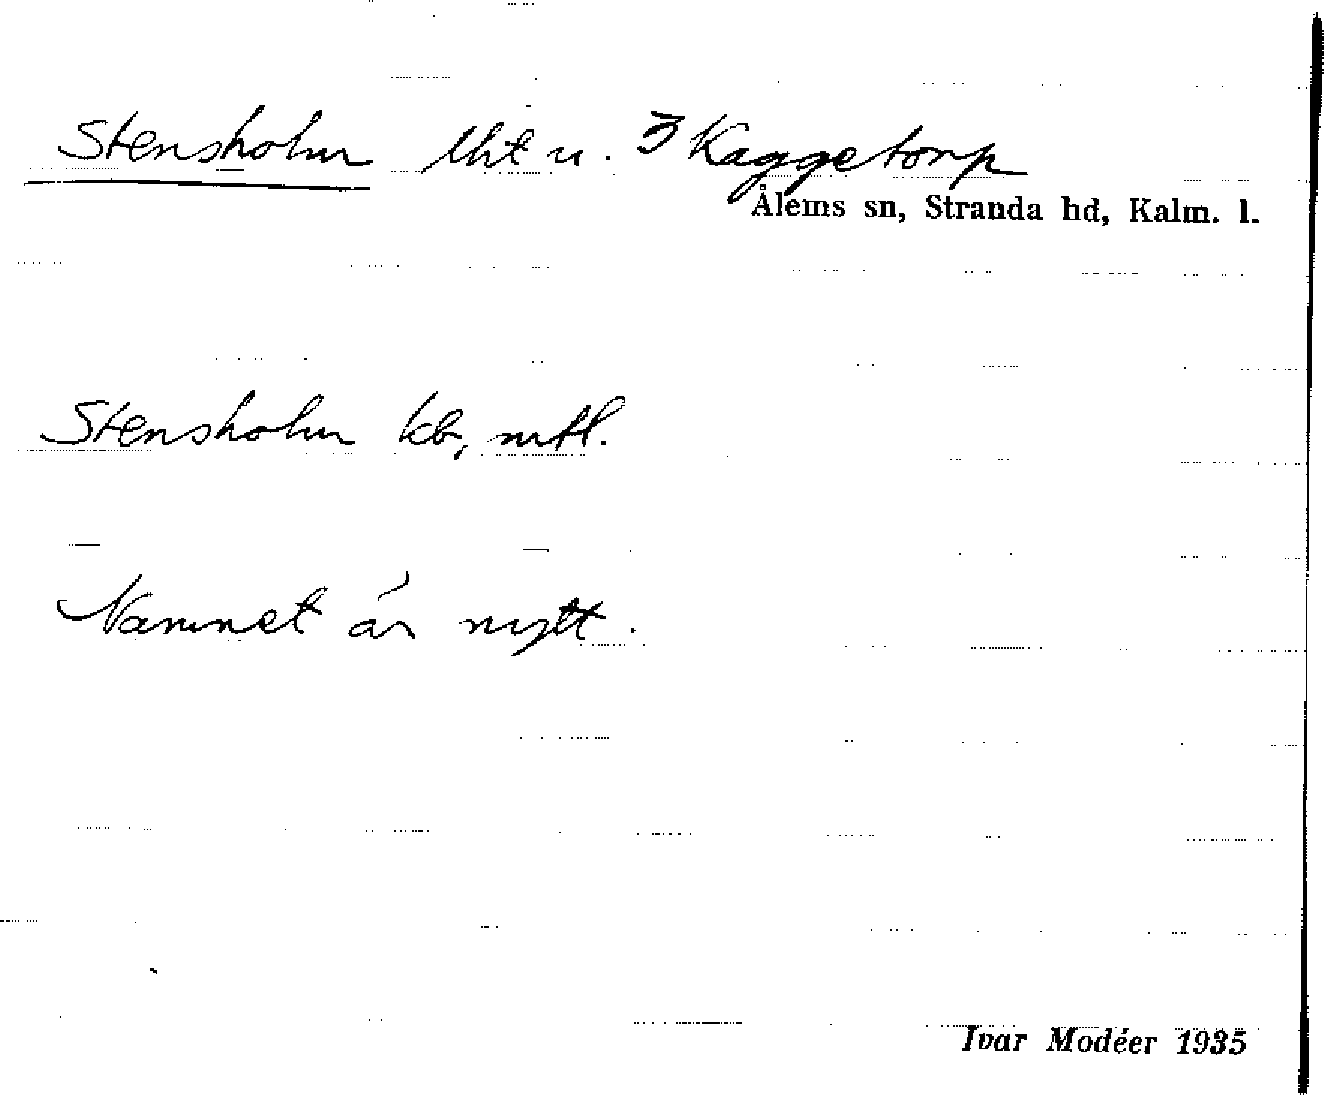 Stensholm lht u. 3 Kaggetorp
Ålems sn, Stranda hd, Kalm. l.
Stensholm kb, mtl.
Namnet är nytt.
Ivar Modéer 1935